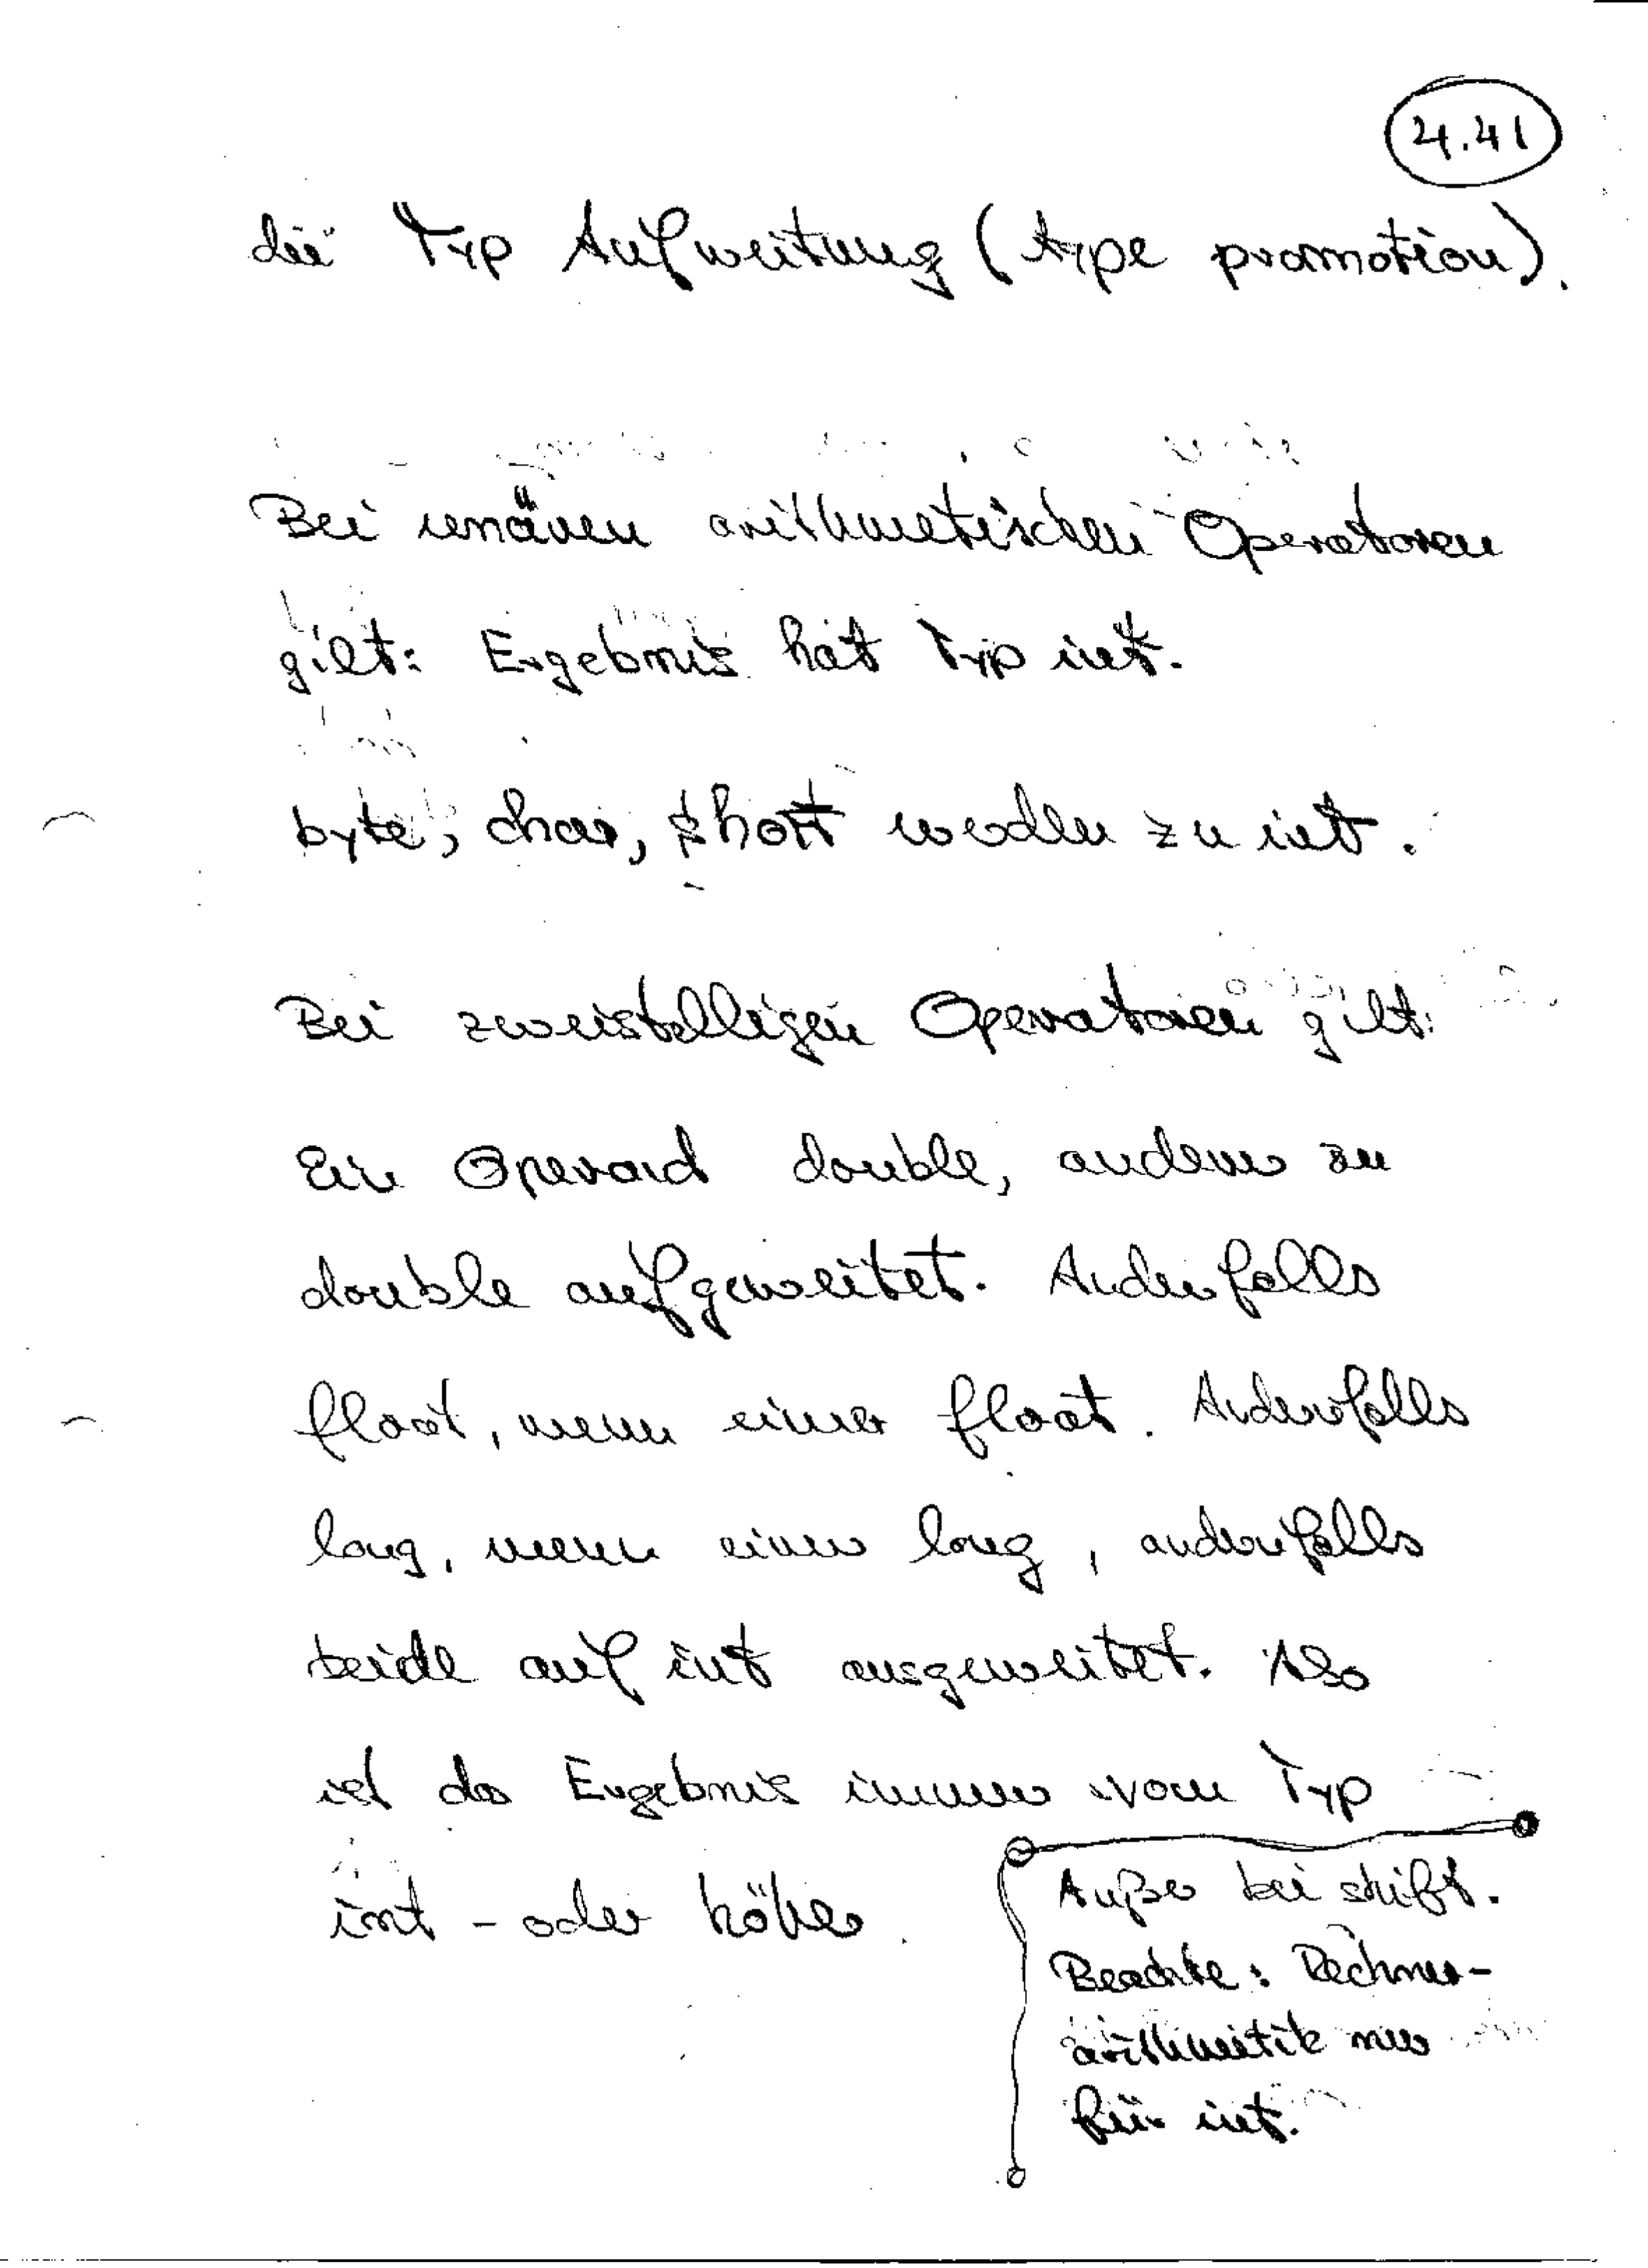 4.41
die Typ Aufweitung (type promotion).
Bei unären arithmetischen Operatoren
gilt: Ergebnis hat Typ int.
byte, char, short werden zu int.
Bei zweistelligen Operatoren gilt:
Ein Operand double, anderer zu
double aufgeweitet. Andernfalls
float, wenn einer float. Andernfalls
long, wenn einer long, andernfalls
beide auf int ausgeweitet. Also
ist das Ergebnis immer vom Typ
int - oder höher.
Außer bei shift.
Beachte: Rechner-
arithmetik nur
für int.